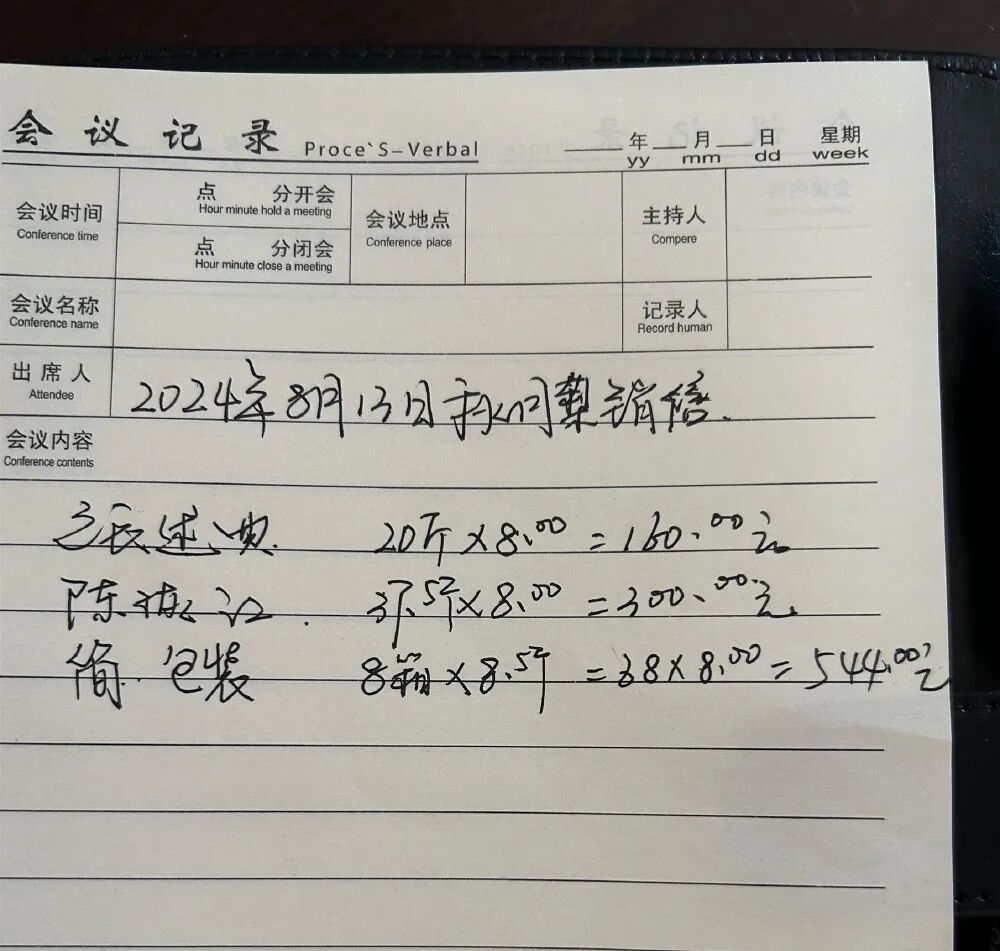 会议记录 Proce`S-Verbal 年 yy 月 mm 日 dd 星期 week
会议时间 Conference time
点 分开会
Hour minute hold a meeting
点 分闭会
Hour minute close a meeting
会议地点 Conference place
主持人 Compere
会议名称 Conference name
记录人 Record human
出席人 Attendee
2024年8月13日 销售
会议内容 Conference contents
20斤×8.00=160.00元
陈 37.5斤×8.00=300.00元
简包装 8箱×8.5斤=68×8.00=544.00元